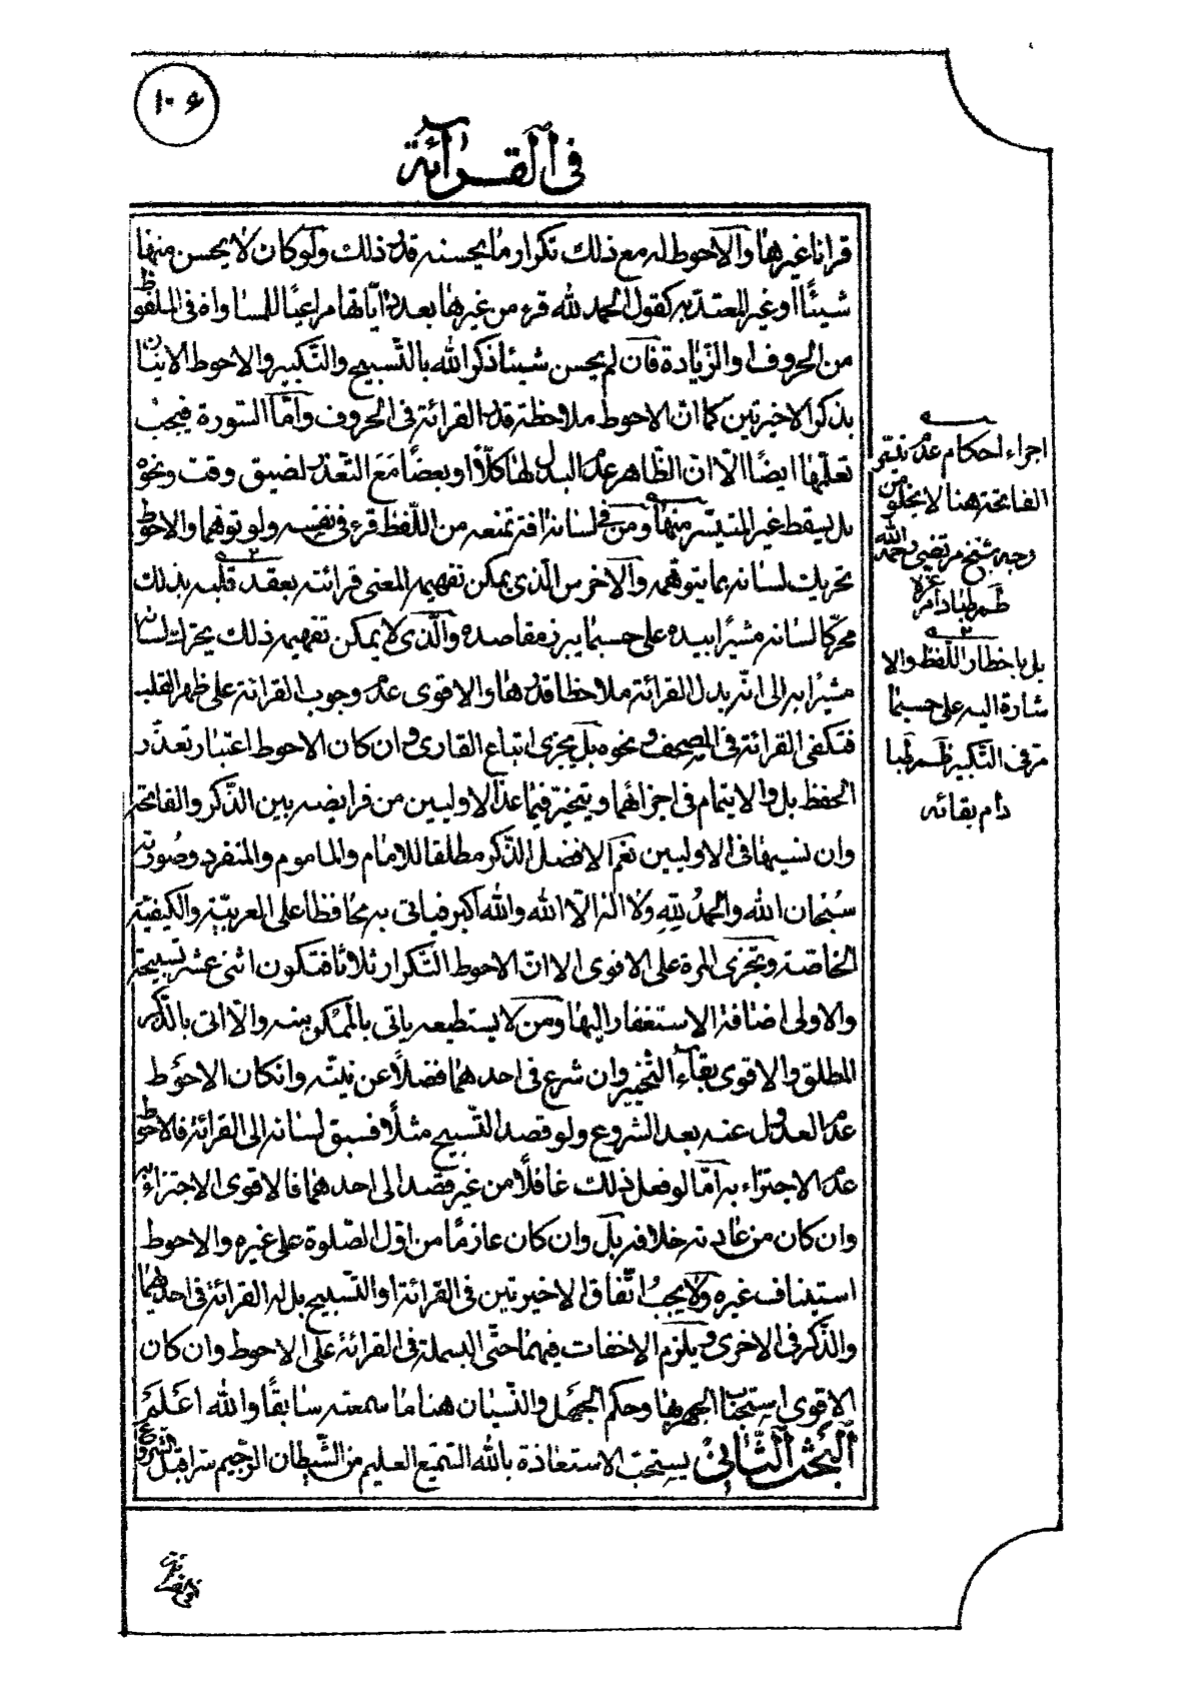 ١٠۶
فى القرائة
قرانا غيرها والاحوط له مع ذلك تكرار ما يحسنه قدر ذلك ولو كان لا يحسن منها
شيئًا او غير المعتد به كقول الحمد لله قرء من غيرها بعدد اياتها مراعيًا للمساواة فى الملفوظ
من الحروف او الزيادة فان لم يحسن شيئا ذكر الله بالتسبيح والتكبير والاحوط الاتيان
بذكر الاخيرتين كما ان الاحوط ملاحظة قدر القرائة فى الحروف وامّا السّورة فيجب
تعلّمها ايضًا الّا انّ الظاهر عدم البدل لها كلًّا او بعضًا مَع التعذر لضيق وقت ونحوه
بل يسقط غير المتيسّر منها ومن فى لسانه افة تمنعه من اللّفظ قرء فى نفسه ولو توهما والاحوط
تحريك لسانه بما يتوهمه والاخرس الّذى يمكن تفهيمه المعنى قرائته بعقد قلبه بذلك
محرّكا لسانه مشيرًا بيده على حسبما يبرز مقاصده والّذى لا يمكن تفهيمه ذلك يحرّك لسانه
مشيرًا به الى انّه بدل القرائة ملاحظا قدرها والاقوى عدم وجوب القرائة على ظهر القلب
فتكفى القرائة فى المصحف ونحوه بل يجزى اتباع القارى وان كان الاحوط اعتبار تعذّر
الحفظ بل والايتمام فى اجزائهما ويتخير فيما عدا الاوليين من فرايضه بين الذّكر والفاتحة
وان نسيها فى الاوليين نعم الافضل الذّكر مطلقا للامام والماموم والمنفرد وصُورته
سُبحان الله والحمدُ لِلّهِ ولا اله الّا الله والله اكبر فياتى به محافظا على العربيّة والكيفيّة
الخاصّة وتجزى المرة على الاقوى الا انّ الاحوط التكرار ثلاثًا فتكون اثنى عشر تسبيحة
والاولى اضافة الاستغفار اليها ومن لا يستطيعه ياتى بالممكن منه والّا اتى بالذّكر
المطلق والاقوى بقاء التّخيير وان شرع فى احدهما فضلًا عن نيّته وانكان الاحوَط
عدم العدول عنه بعد الشروع ولو قصد التّسبيح مثلًا فسبق لسانه الى القرائة فالاحوط
عدم الاجتزاء به امّا لو فعل ذلك غافلًا من غير قصد الى احدهما فالاقوى الاجتزاء به
وان كان من عادته خلافه بل وان كان عازمًا من اوّل الصّلوة على غيره والاحوط
استيناف غيره ولا يجبُ اتّفاق الاخيرتين فى القرائة او التسبيح بل له القرائة فى احديهما
والذّكر فى الاخرى ويلزم الاخفات فيهما حتّى البسملة فى القرائة على الاحوط وان كان
الاقوى استحباب الجهر بها وحكم الجهل والنّسيان هنا ما سمعته سابقًا والله اعلم
البحث الثّانى يستحبّ الاستعاذة بالله السّميع العليم من الشّيطان الرّجيم سرا قبل الشروع
اجراء احكام عدم تيسّر
الفاتحة هنا لا يخلو من
وجه شيخ مرتضى رحمه الله
ظم طبا دام عزه
٢
بل باخطار اللّفظ والا
شارة اليه على حسبما
مرّ فى التّكبير ظم طبا
دام بقائه